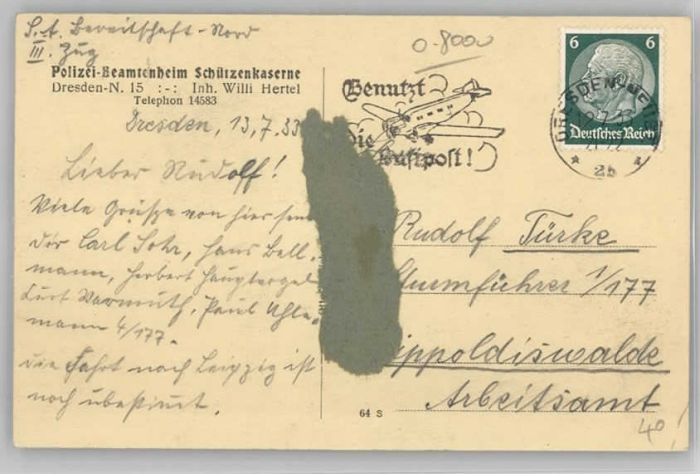 S.A. Bereitschaft-Nord
III. Zug
0-8000
Polizei-Beamtenheim Schützenkaserne
Dresden-N. 15 :-: Inh. Willi Hertel
Telephon 14583
Benutzt
die
Luftpost!
6 6
Deutsches Reich
DRESDEN-NEUST
25
Dresden, 13.7.33
Lieber Rudolf!
Viele Grüsse von hier sen
dir Carl Sohr, Hans Bell-
mann, Herbert Hauptvogel
Kurt Warmuth, Paul Uhle-
mann 4/177.
die Fahrt nach Leipzig ist
noch unbestimmt.
Rudolf Türke
Sturmführer 1/177
ippoldiswalde
Arbeitsamt
64 S
40